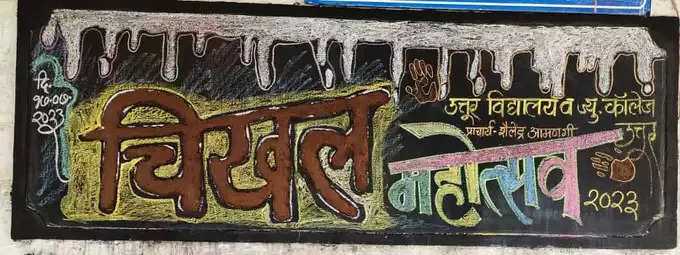 दि.
१७-०७
२०२३
चिखल
उत्तूर विद्यालय व ज्यु. कॉलेज
उत्तूर
प्राचार्य- शैलेंद्र आमणगी
महोत्सव
२०२३